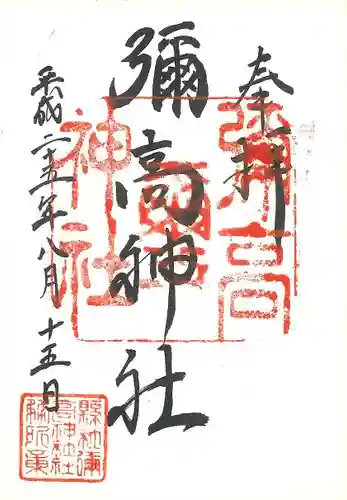 奉拝
彌高神社
平成二十五年八月十五日
彌高
神社
縣社彌
高神社社
務所章